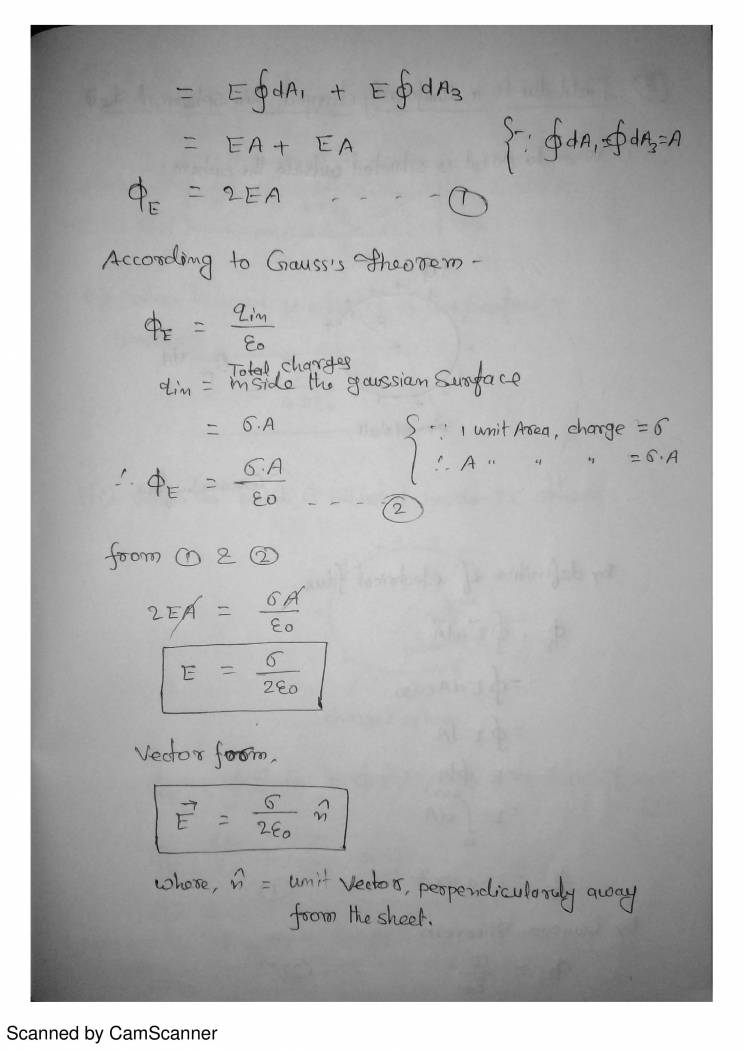 = E∮dA₁ + E∮dA₃
= EA + EA {∵ ∮dA₁=∮dA₃=A
ϕE = 2EA - - - - ①
According to Gauss's Theorem -
ϕE = qin/ε0
qin = Total charges inside the gaussian Surface
= σ.A {∵ 1 unit Area, charge = σ
∴ A " " " = σ.A
∴ ϕE = σ.A/ε0 - - - - ②
from ① & ②
2EA = σA/ε0
E = σ/2ε0
Vector form,
E⃗ = σ/2ε0 n̂
where, n̂ = unit vector, perpendicularly away
from the sheet.
Scanned by CamScanner